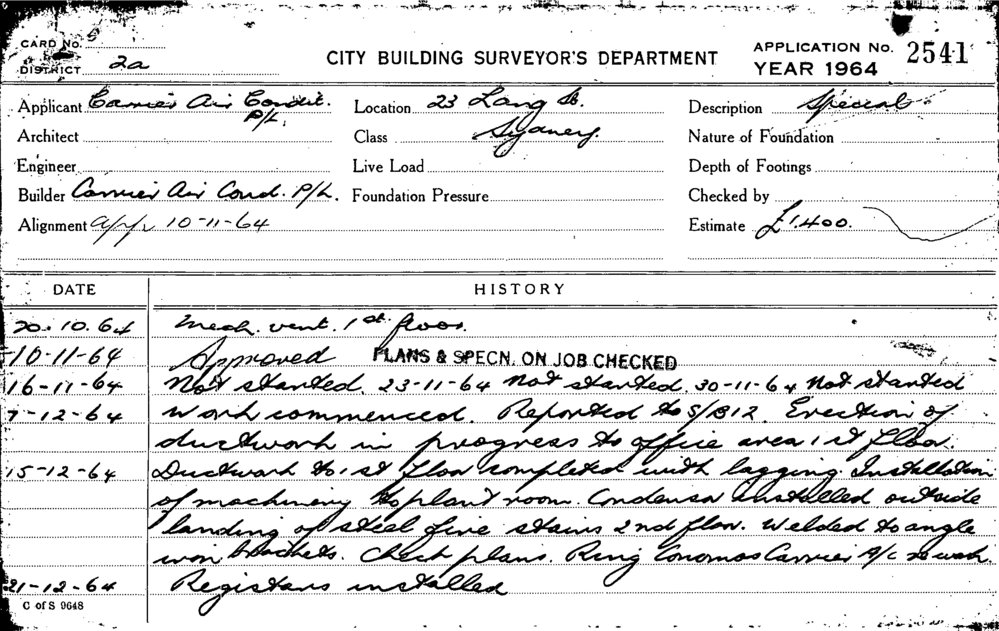 CARD No.
DISTRICT 2a
CITY BUILDING SURVEYOR'S DEPARTMENT
APPLICATION No. 2541
YEAR 1964
Applicant Carrier Air Condit. P/L.
Location 23 Lang St.
Description Special
Architect
Class Sydney.
Nature of Foundation
Engineer
Live Load
Depth of Footings
Builder Carrier Air Cond. P/L.
Foundation Pressure
Checked by
Alignment app 10-11-64
Estimate £1,400.
DATE HISTORY
20.10.64 Mech. vent. 1st floor.
10-11-64 Approved PLANS & SPECN. ON JOB CHECKED
16-11-64 Not started. 23-11-64 Not started. 30-11-64 Not started
7-12-64 Work commenced. Reported to S/B12. Erection of
ductwork in progress to office area 1st floor.
15-12-64 Ductwork to 1st floor completed with lagging. Installation
of machinery to plant room. Condensor installed outside
landing of steel fire stairs 2nd floor. Welded to angle
iron brackets. Check plans. Ring Conomos Carrier A/c re
21-12-64 Registers installed
C of S 9648